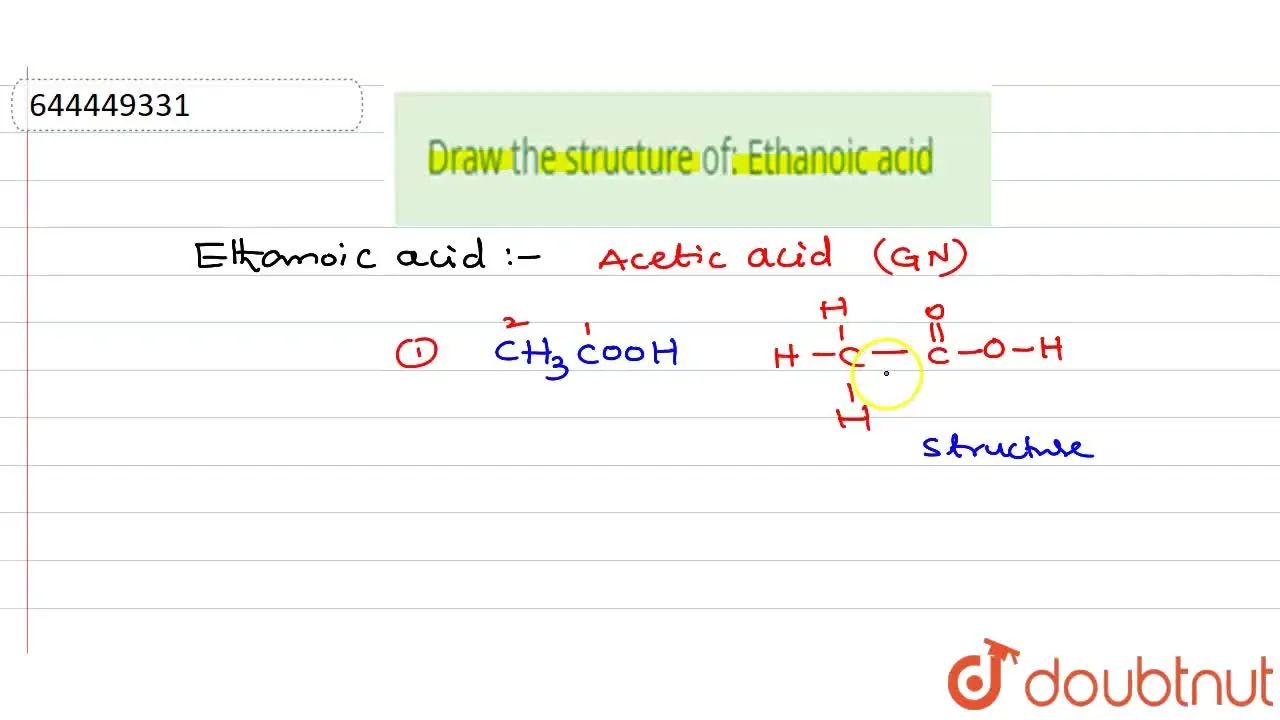 644449331
Draw the structure of: Ethanoic acid
Ethanoic acid :- Acetic acid (GN)
2 1
① CH₃COOH
H O
H – C – C – O – H
H
structure
doubtnut